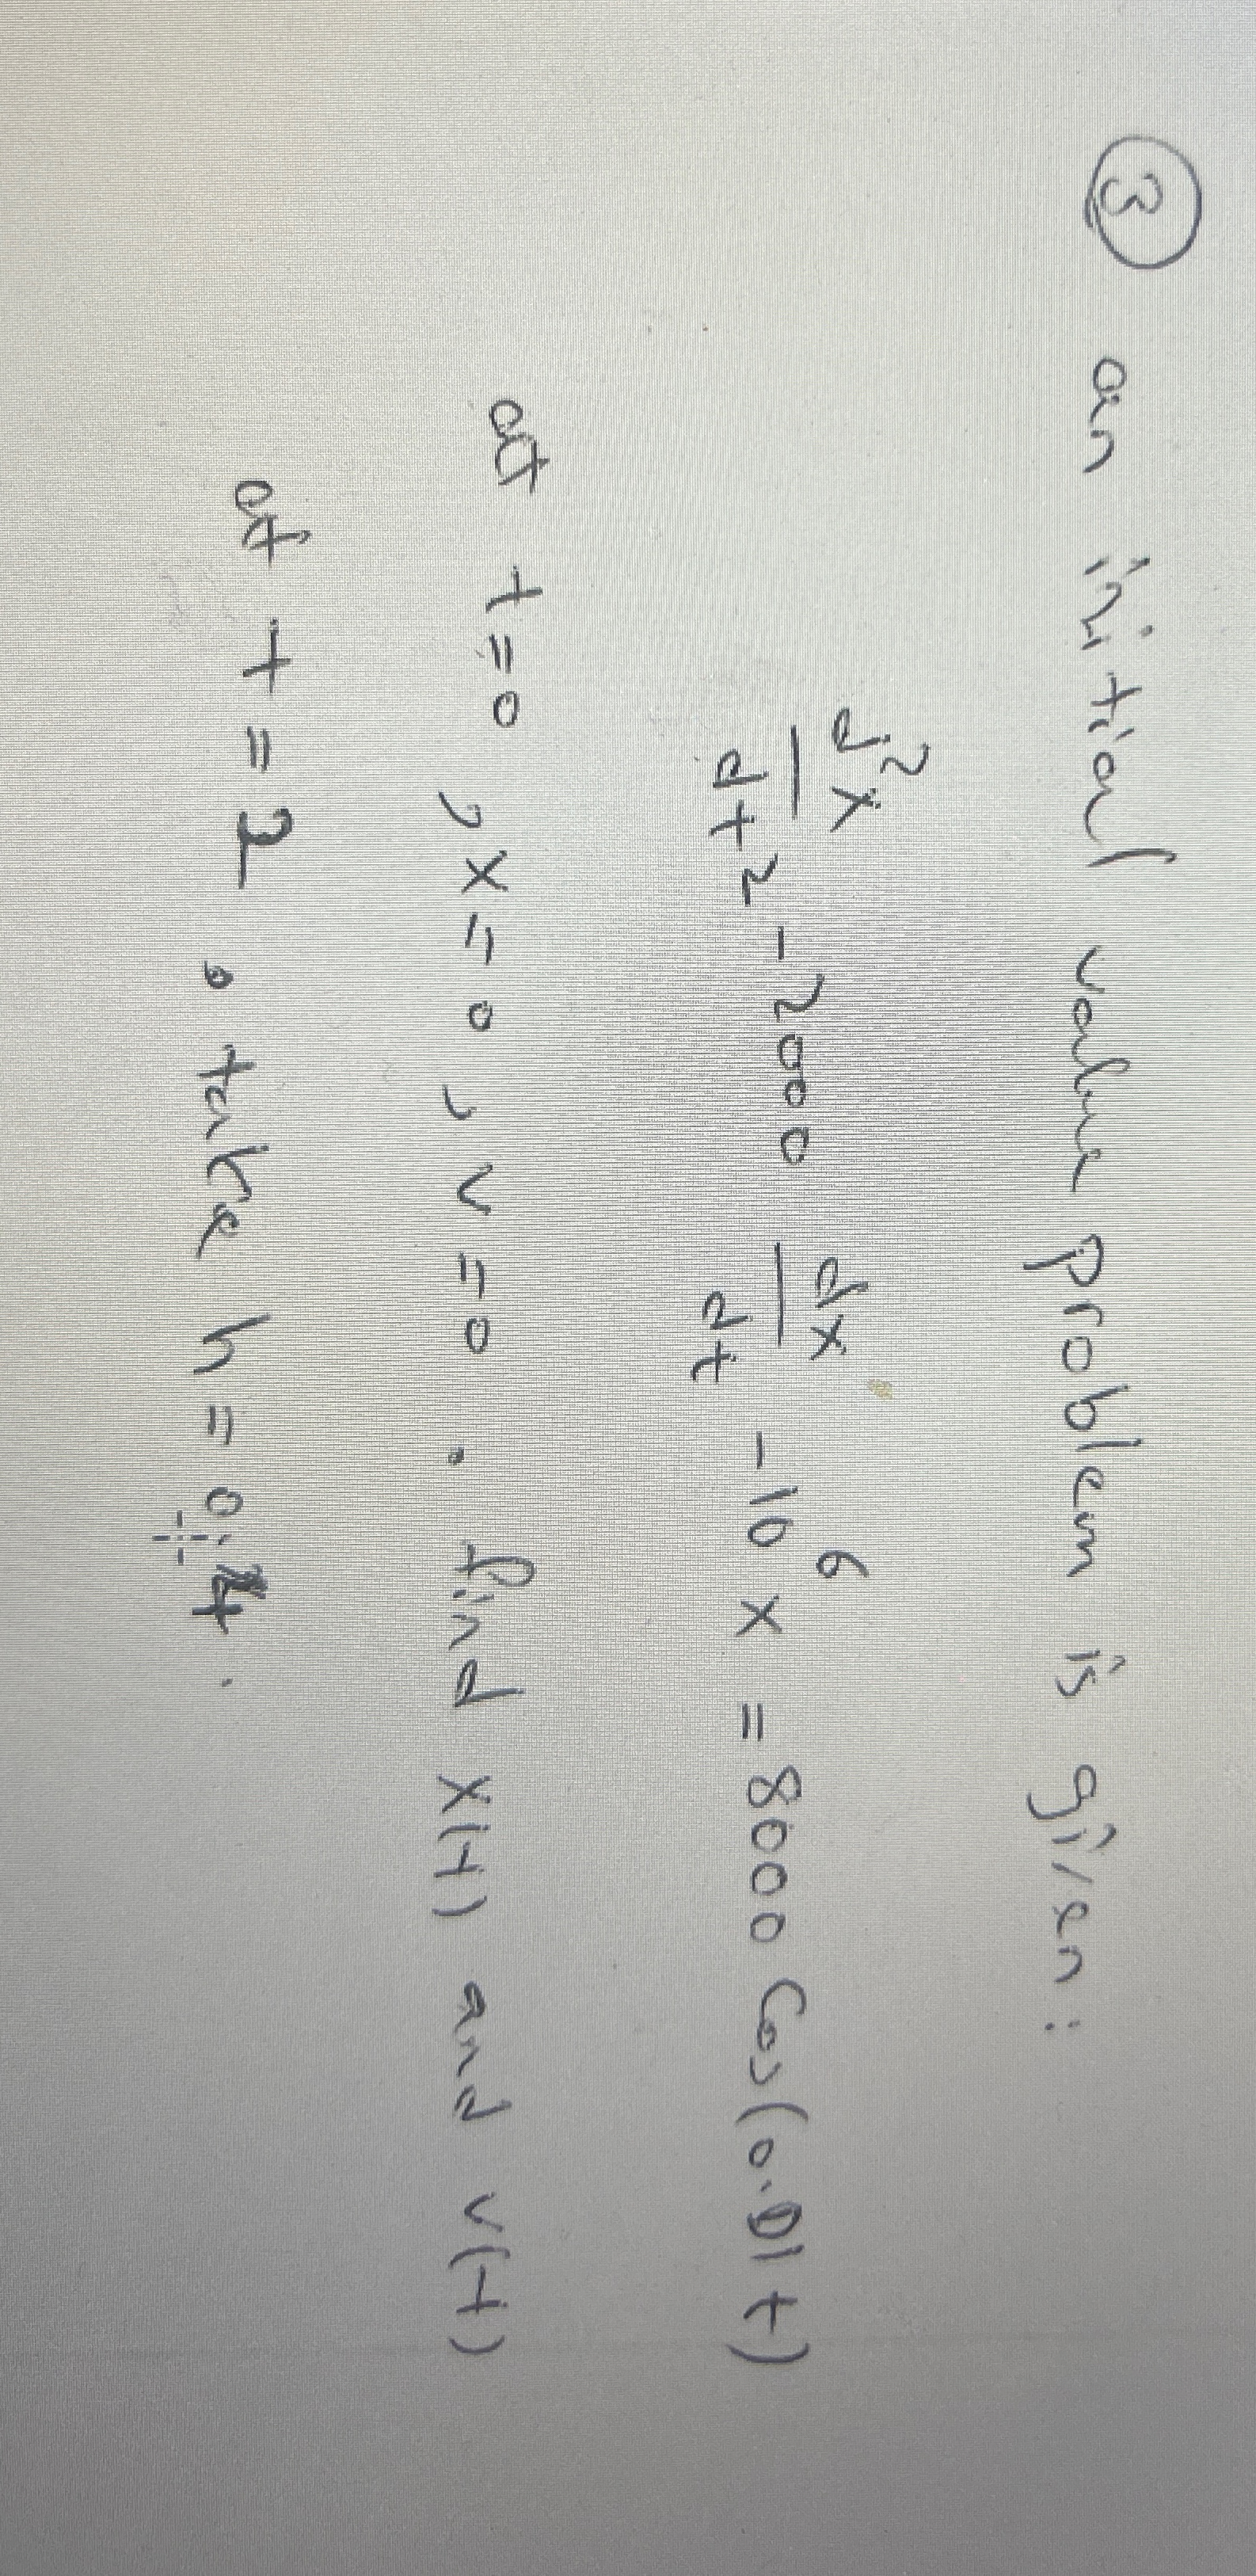 ③ an initial value problem is given:
d²x/dt² - 2000 dx/dt - 10⁶ x = 8000 Cos(0.01t)
at t=0 , x=0 , v=0 . find x(t) and v(t)
at t = 2 . take h = 0.4 .